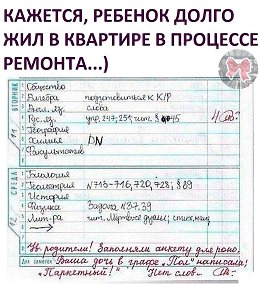 КАЖЕТСЯ, РЕБЕНОК ДОЛГО
ЖИЛ В КВАРТИРЕ В ПРОЦЕССЕ
РЕМОНТА...)
ВТОРНИК
Общество
Алгебра подготовиться к К/Р
Англ. яз. слова
Рус. яз. упр. 247; 251, 
География
Химия
Факультатив
СРЕДА
Биология
Геометрия №715-716, 720, 728; § 89
История
Физика Задача №37.39
Лит-ра чит. Мёртвые души;
Ув. родители! Заполняли анкету для роно,
Ваша дочь в графе "Пол" написала:
"Паркетный!" Нет слов...